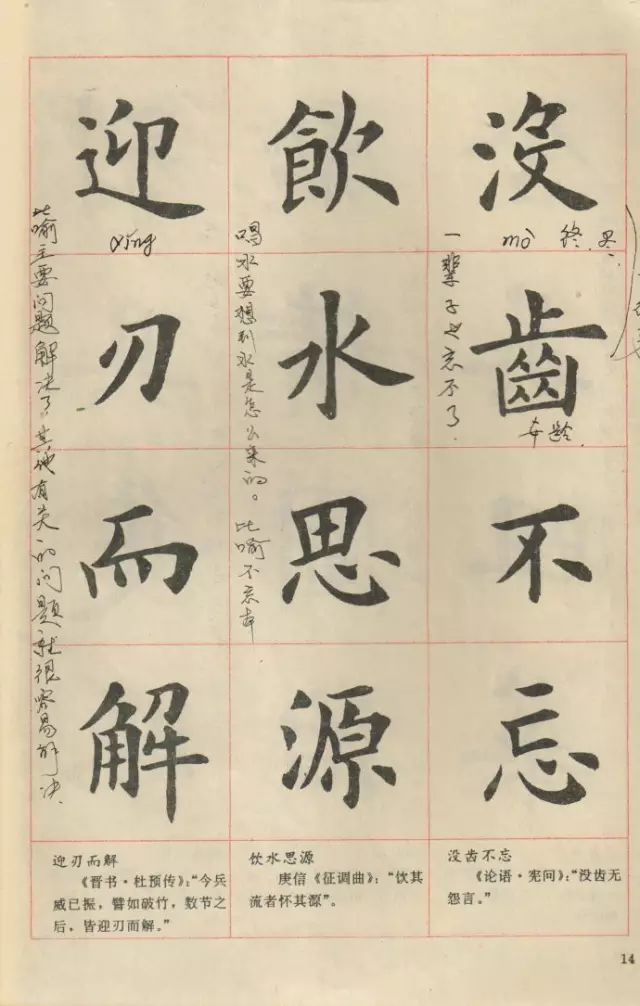 没齒不忘
mò 终.
年龄.
一辈子也忘不了.
飲水思源
喝水要想到水是怎么来的。比喻不忘本
迎刃而解
yíng
比喻主要问题解决了。其他有关的问题就很容易解决.
没齿不忘
《论语·宪问》:“没齿无
怨言。”
饮水思源
庾信《征调曲》:“饮其
流者怀其源”。
迎刃而解
《晋书·杜预传》:“今兵
威已振,譬如破竹,数节之
后,皆迎刃而解。”
14